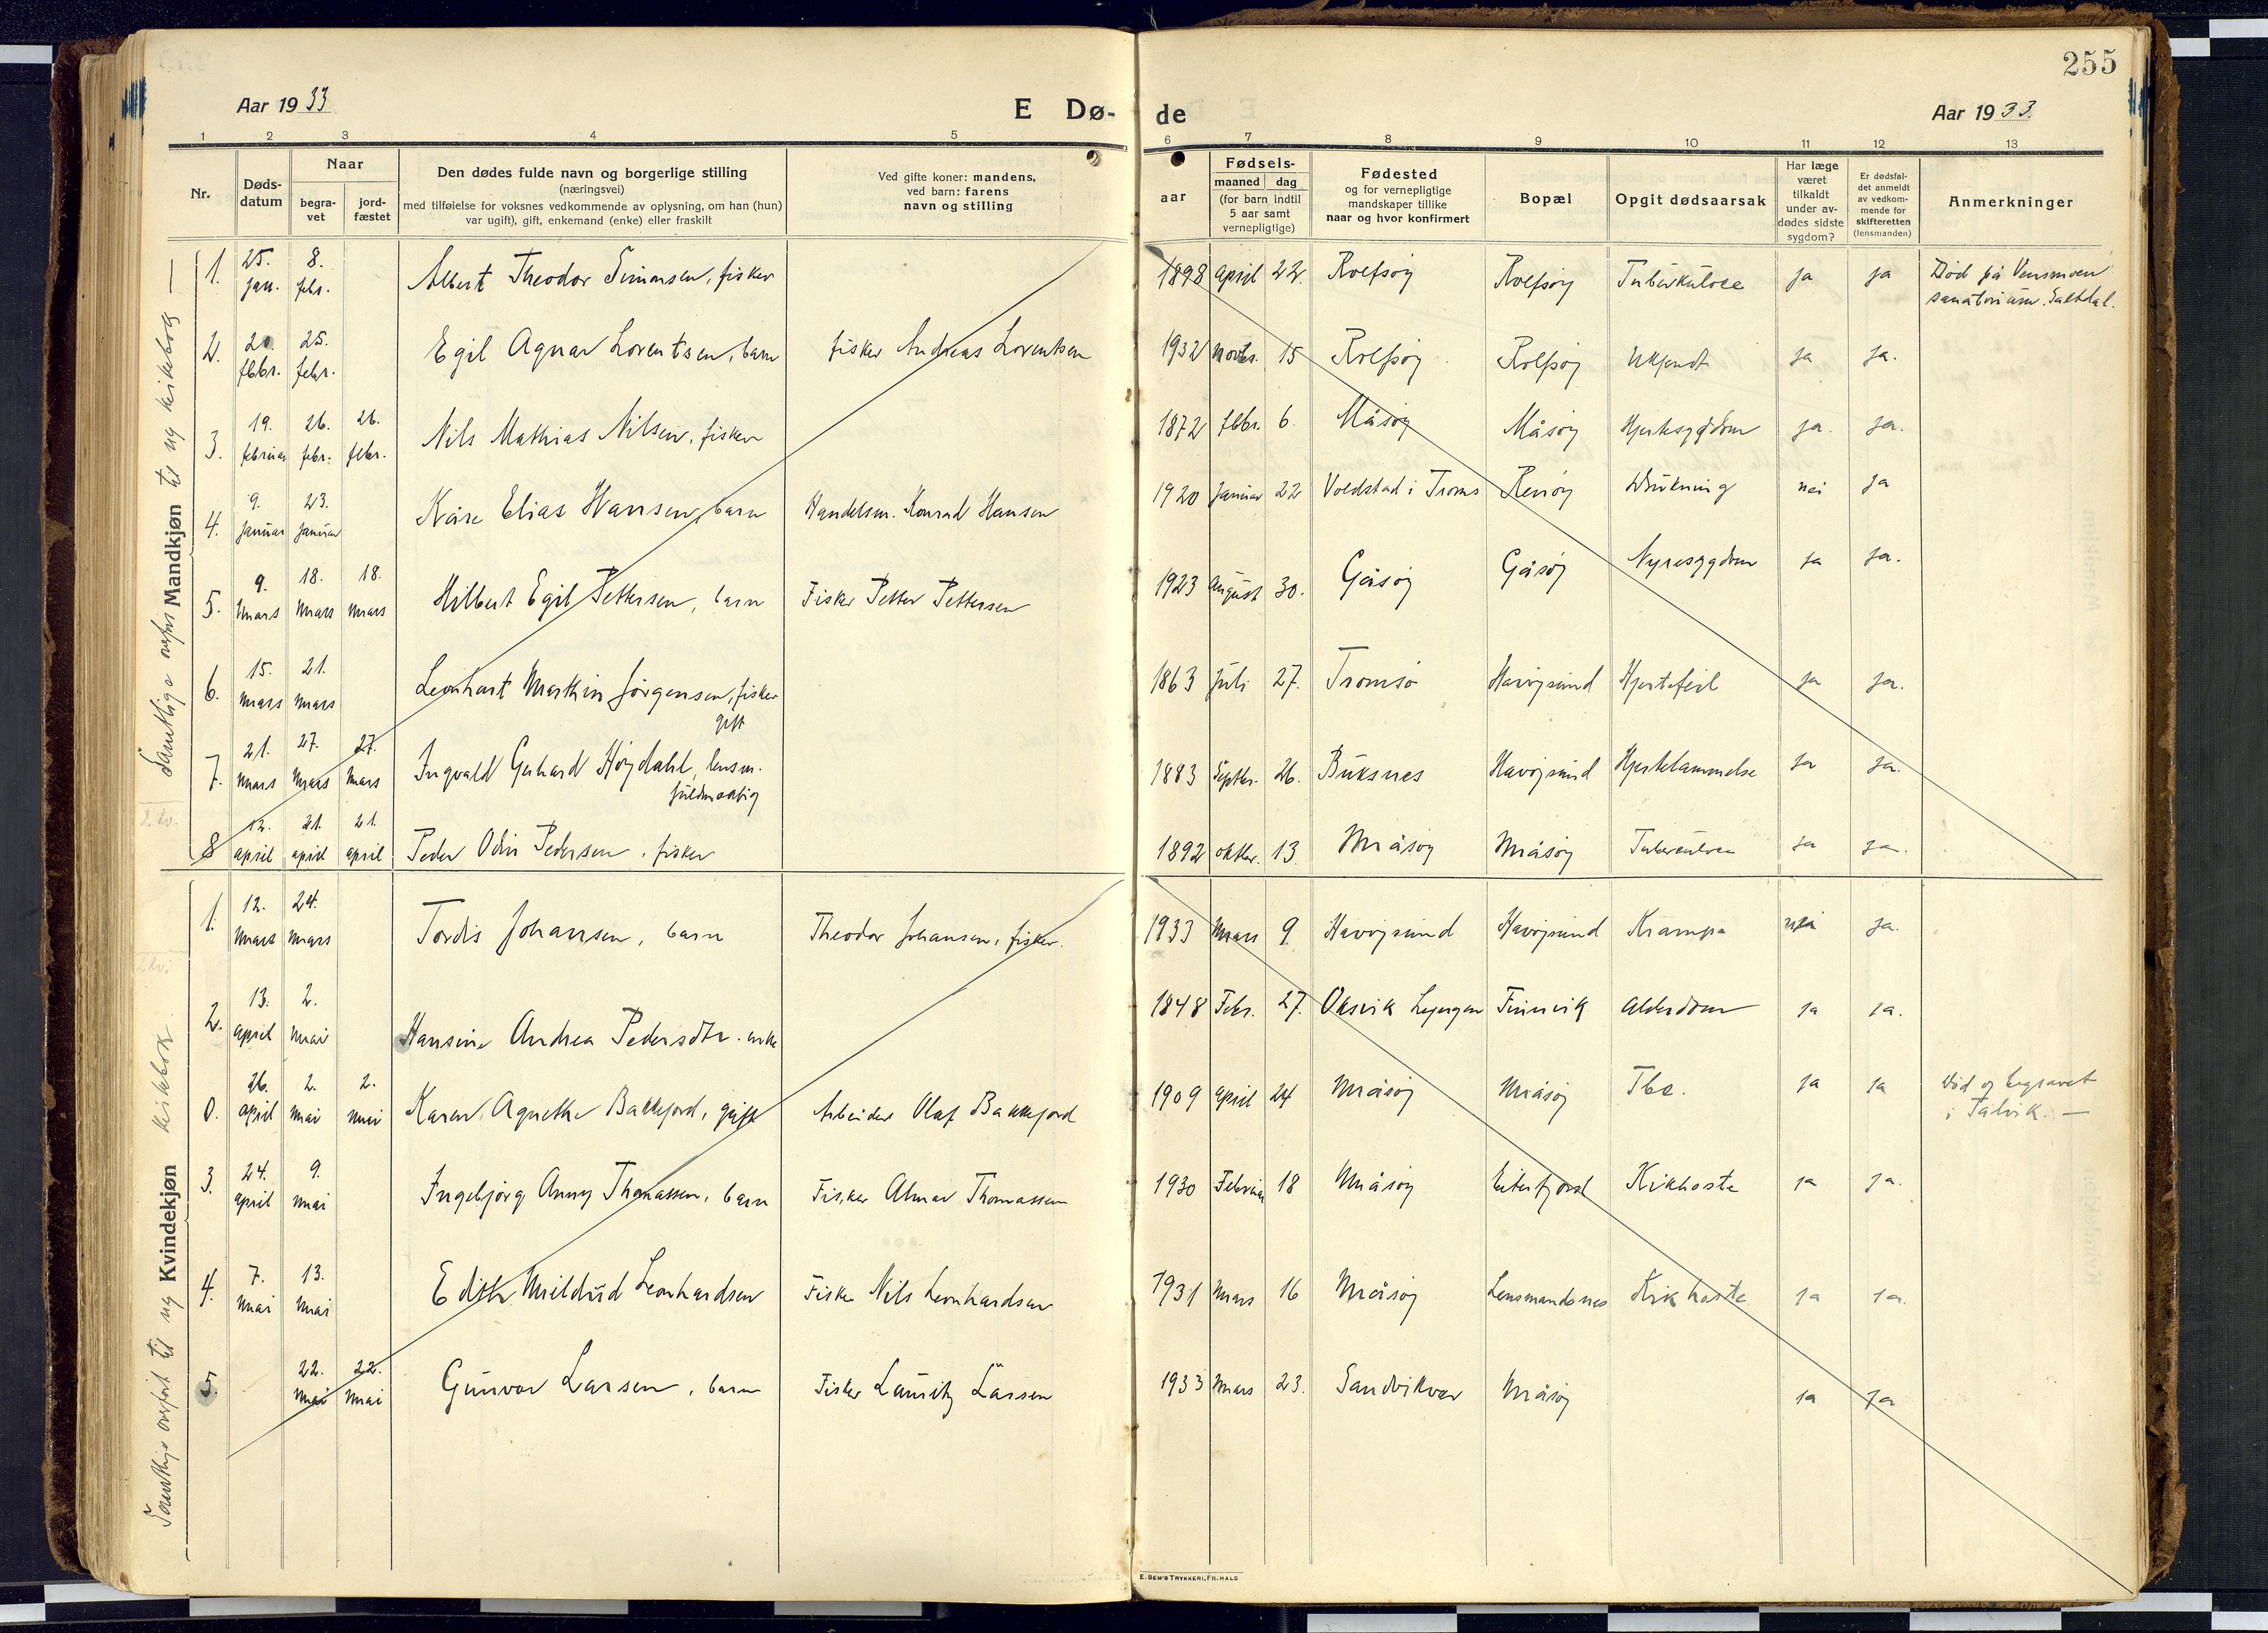 255
Aar 1933
E Dø-
de
Aar 1933.
1 2 3 4 5 6 7 8 9 10 11 12 13
Nr.
Døds-
datum
Naar
begra-
vet
jord-
fæstet
Den dødes fulde navn og borgerlige stilling
(næringsvei)
med tilføielse for voksnes vedkommende av oplysning, om han (hun)
var ugift), gift, enkemand (enke) eller fraskilt
Ved gifte koner: mandens,
ved barn: farens
navn og stilling
aar
Fødsels-
maaned dag
(for barn indtil
5 aar samt
vernepligtige)
Fødested
og for vernepligtige
mandskaper tillike
naar og hvor konfirmert
Bopæl
Opgit dødsaarsak
Har læge
været
tilkaldt
under av-
dødes sidste
sygdom?
Er dødsfal-
det anmeldt
av vedkom-
mende for
skifteretten
(lensmanden)
Anmerkninger
Samtlige ovfört Mandkjøn til ny kirkebog —
1. 25. jan. 8. febr. Albert Theodor Simonsen, fisker 1898 april 22. Rolfsöy Rolfsöy Tuberkulose ja ja Död på Vensmoen
sanatorium. Saltdal.
2. 20. febr. 25. febr. Egil Agnar Lorentsen, barn fisker Andreas Lorentsen 1932 novbr. 15 Rolfsöy Rolfsöy Ukjendt ja ja.
3. 19. februar 26. febr. 26. febr. Nils Mathias Nilsen, fisker 1872 febr. 6. Måsöy Måsöy Hjertesygdom ja. ja.
4. 9. januar 23. januar Kåre Elias Hansen, barn Handelsm. Konrad Hansen 1920 januar 22 Voldstad i Troms Renöy Drukning nei ja
5. 9. Mars 18. Mars 18. Mars Hilbert Egil Pettersen, barn Fisker Petter Pettersen 1923 august 30. Gåsöy Gåsöy Nyresygdom ja ja.
6. 15. Mars 21. Mars Leonhart Martin Jörgensen, fisker
gift 1863 juli 27. Tromsö Havöysund Hjertefeil ja ja.
7. 21. Mars 27. Mars 27. Mars Ingvald Gerhard Höydahl, lensm.
fuldmægtig 1883 Septbr. 26. Buksnes Havöysund Hjertelammelse ja ja.
2. kv.
8 12. april 21. april 21. april Peder Odin Pedersen, fisker 1892 oktbr. 13 Måsöy Måsöy Tuberculose ja ja.
Samtlige ovfört til ny Kvindekjøn kirkebok.
1. 12. Mars 24. Mars Tordis Johansen, barn Theodor Johansen, fisker. 1933 Mars 9. Havöysund Havöysund Krampe nei ja.
2. 13. april 2. Mai Hansine Andrea Pedersdtr. enke 1848 Febr. 27. Oksvik Lyngen Finnvik Alderdom ja ja.
0. 26. april 2. mai 2. mai Karen Agnethe Bakkejord, gift Arbeider Olaf Bakkejord 1909 april 24 Måsöy Måsöy Tbc. ja ja Död og begravet
i Talvik. —
3. 24. april 9. mai Ingebjörg Anny Thomassen, barn Fisker Almar Thomassen 1930 Februar 18 Måsöy Eiterfjord Kikhoste ja ja.
4. 7. Mai 13. Mai Edith Mildrid Leonhardsen Fisker Nils Leonhardsen 1931 Mars 16 Måsöy Lensmandsnes Kikhoste ja ja.
5. 22. Mai 22. Mai Gunvor Larsen, barn Fisker Lauritz Larsen 1933 Mars 23. Sandvikvær Måsöy ja ja
E. BEM'S TRYKKERI, FR. HALD